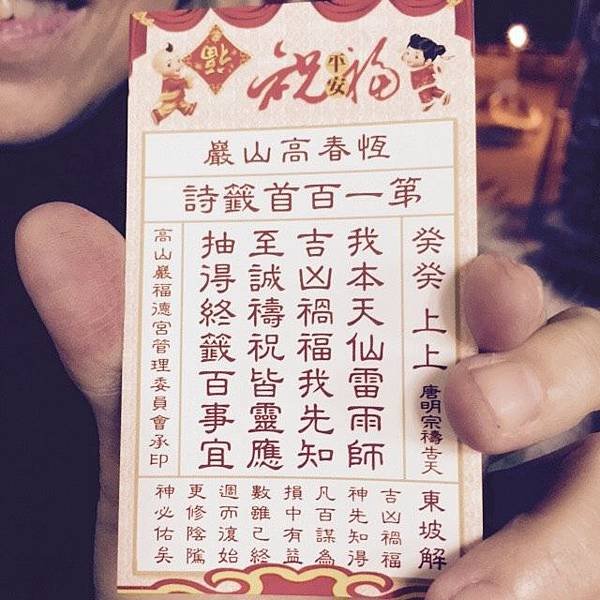 福
祝平安福
恆春高山巖
第一百首籤詩
癸癸 上上 唐明宗禱告天
我本天仙雷雨師
吉凶禍福我先知
至誠禱祝皆靈應
抽得終籤百事宜
高山巖福德宮管理委員會承印
東坡解
吉凶禍福
神先知得
凡百謀為
損中有益
數雖已終
週而復始
更修陰騭
神必佑矣